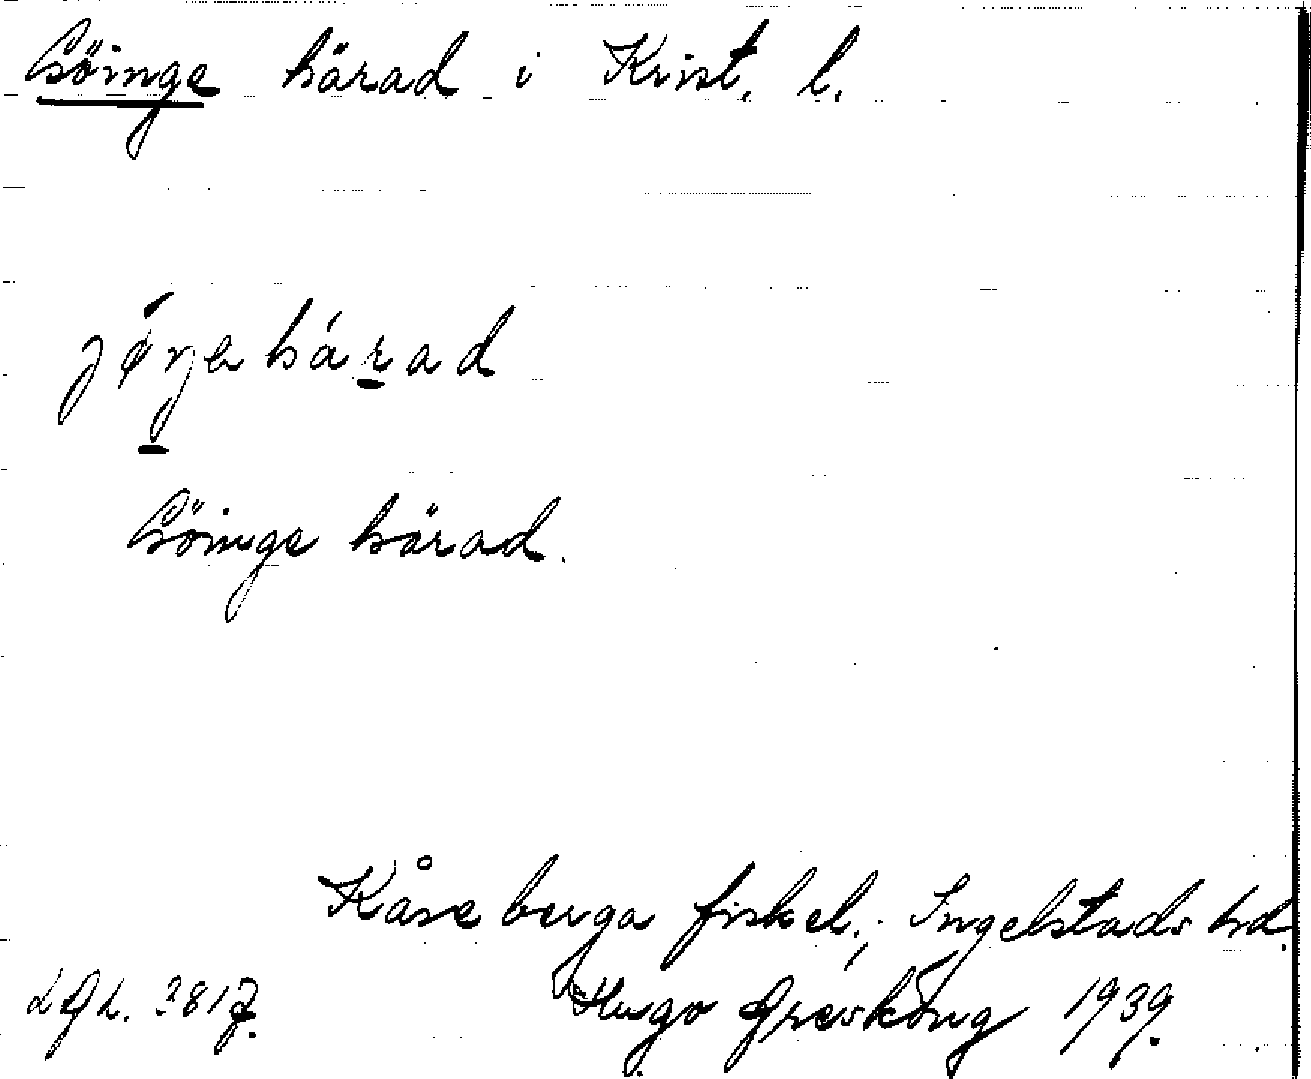 Göinge härad i Krist. l.
Göinge härad.
Kåseberga fiskel., Ingelstads hd.
LGL. 3817. Hugo Areskoug 1939.